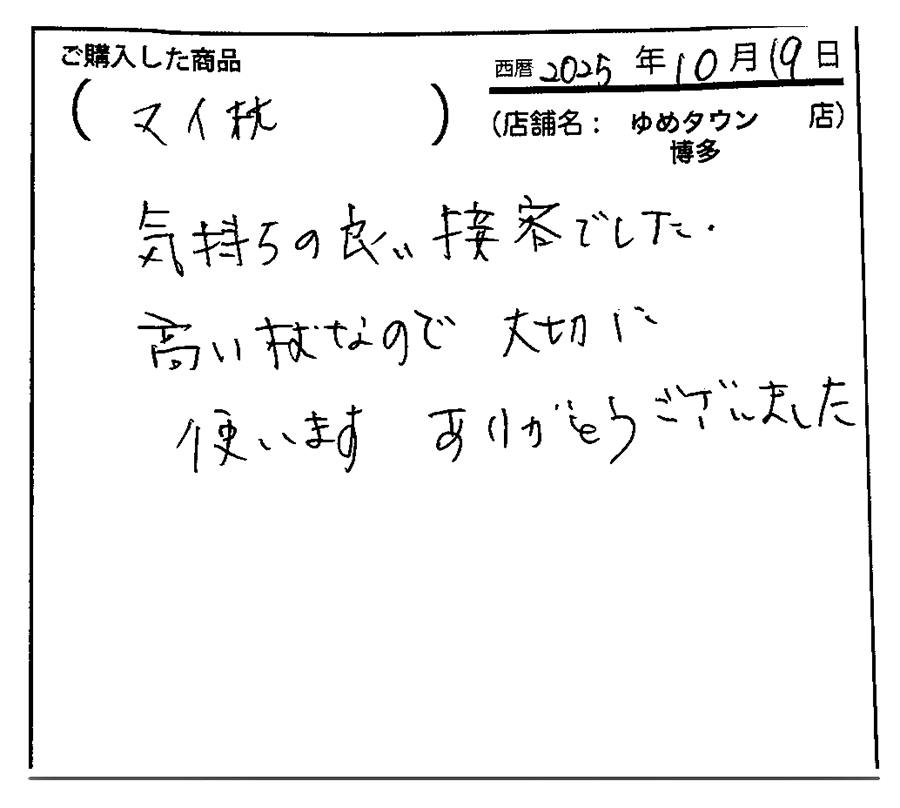 ご購入した商品
西暦 2025 年 10 月 19 日
( マイ枕 )
(店舗名： ゆめタウン 博多 店)
気持ちの良い接客でした．
高い枕なので 大切に
使います ありがとうございました